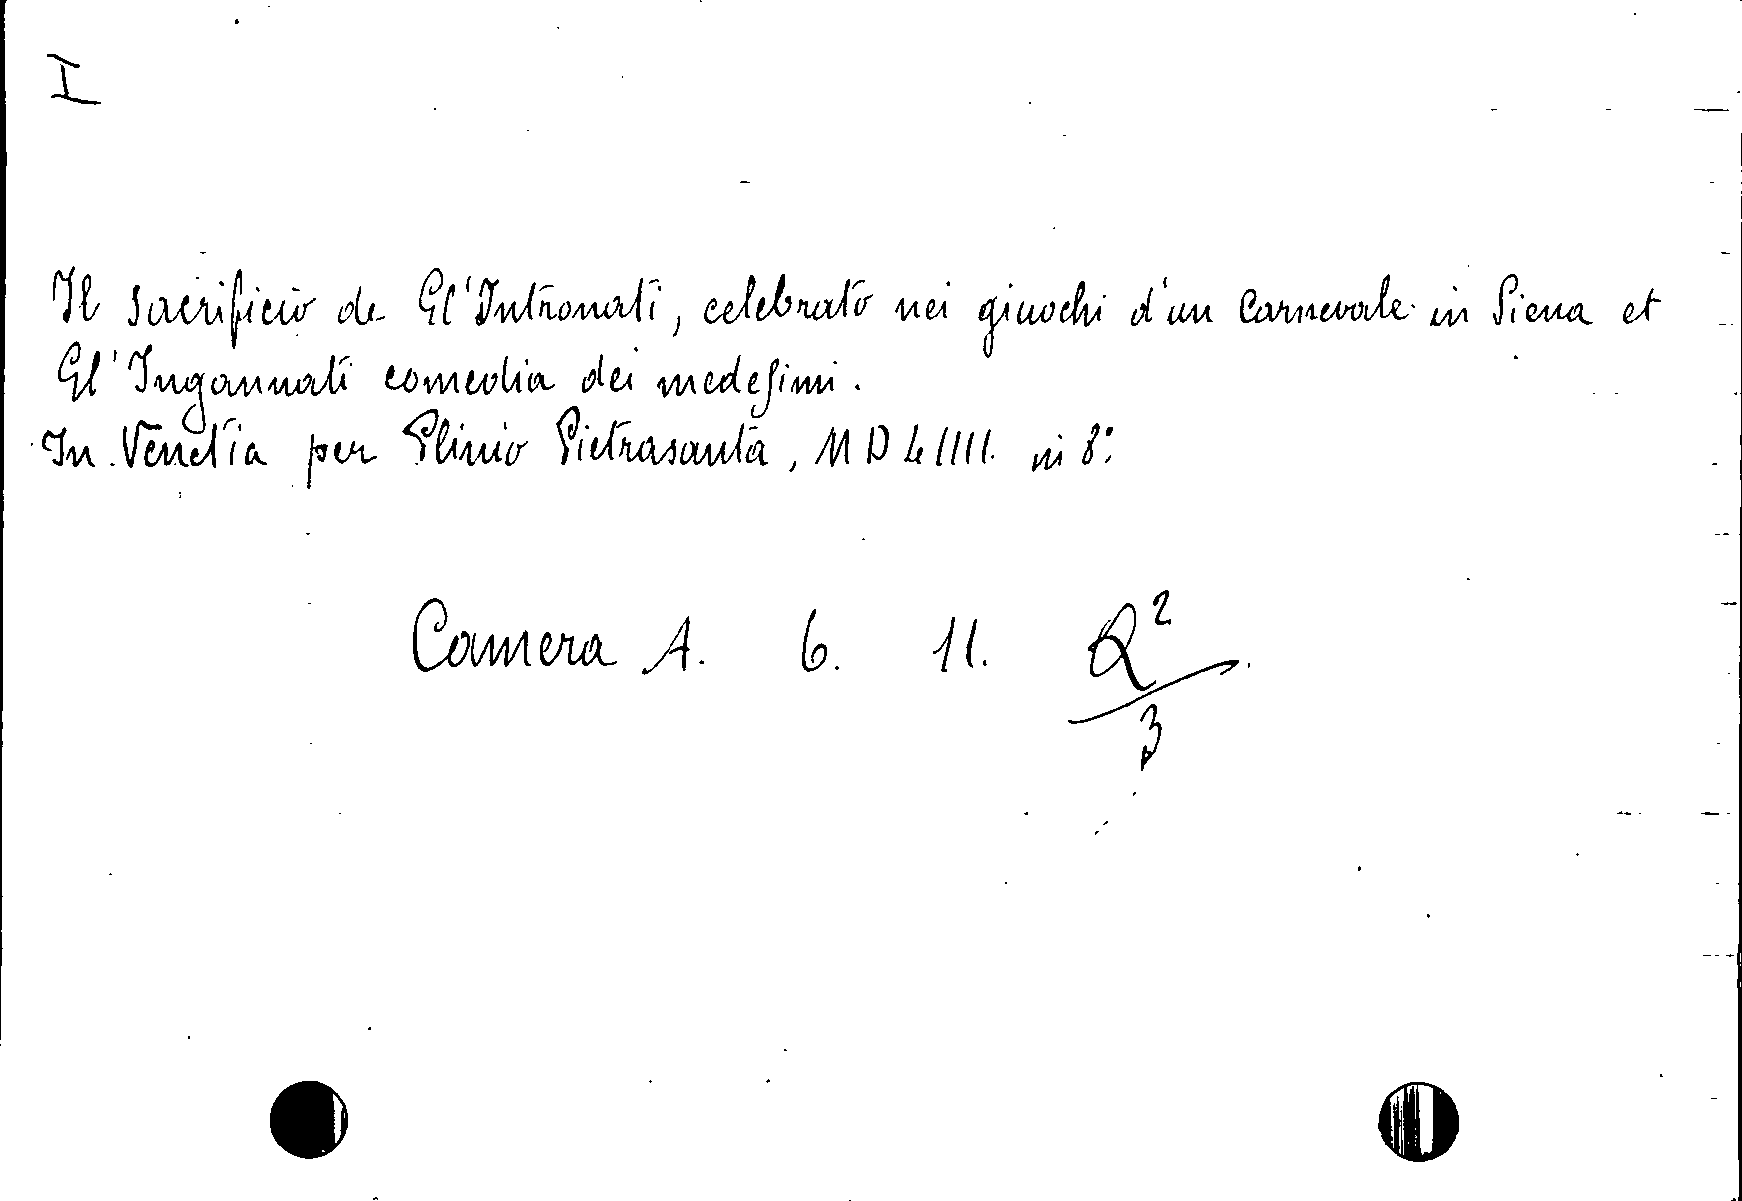 I
Il sacrificio de Gl'Intronati, celebrato nei giuochi d'un Carnevale in Siena et
Gl'Ingannati comedia dei medesimi.
In Venetia per Plinio Pietrasanta, MDLIIII. in 8°.
Camera A. 6. 11. R²/3